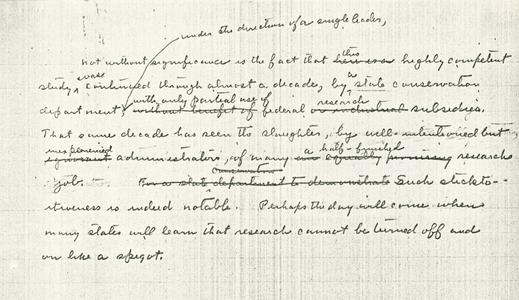 under the direction of a single leader,
not without significance is the fact that this highly competent
study, was continued through almost a decade, by a state conservation
department with only partial use of federal research subsidies.
That same decade has seen the slaughter, by well-intentioned but
administrators, of many a half-finished research
job. For a state conservation department to demonstrate Such stick-to-
itiveness is indeed notable. Perhaps the day will come when
many states will learn that research cannot be turned off and
on like a spigot.